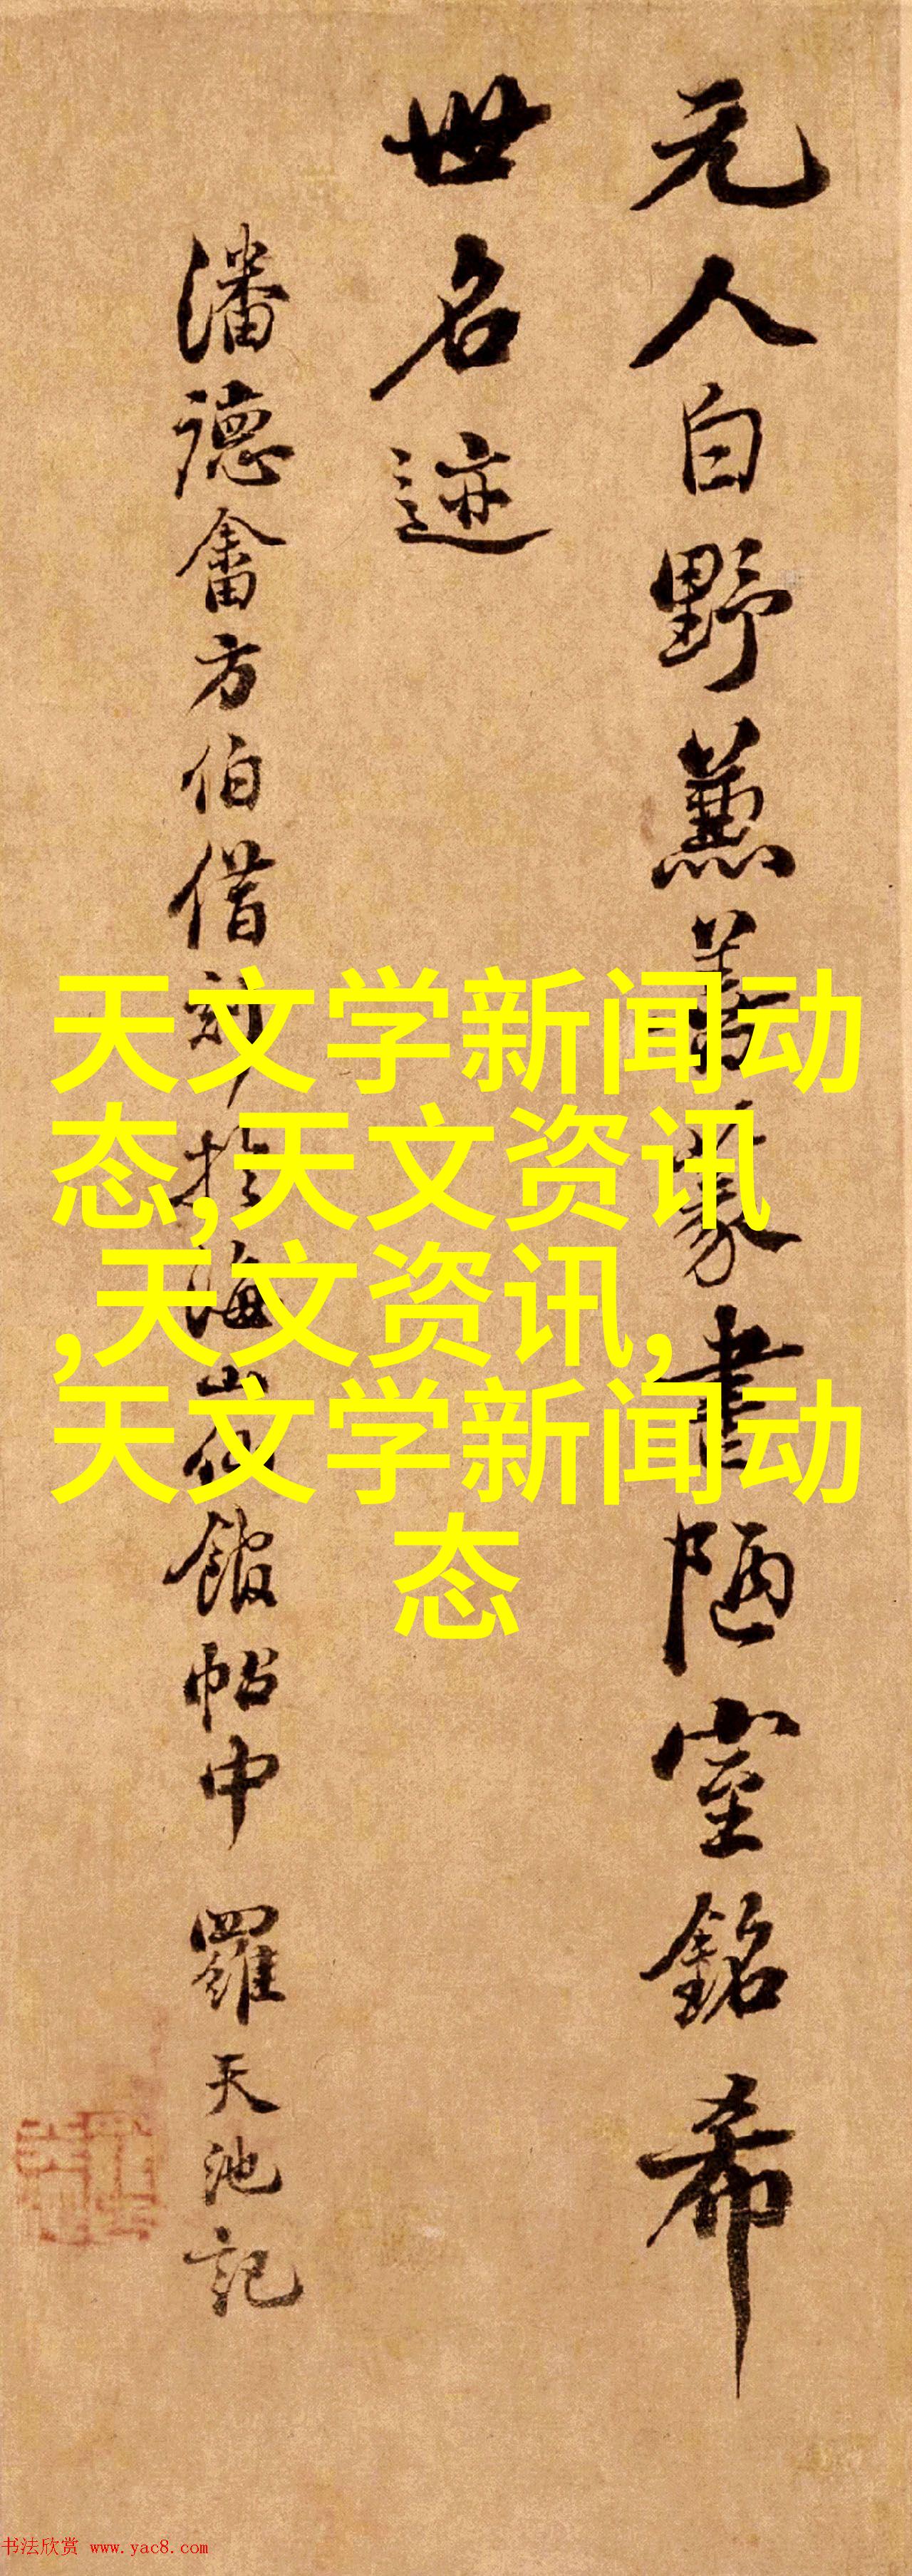 元人白野兼善篆書陋室銘希
世名迹
潘德畬方伯借刻於海山仙館帖中 羅天池記
天文学新闻动
态,天文资讯
,天文资讯,
天文学新闻动
态
书法欣赏 www.yac8.com